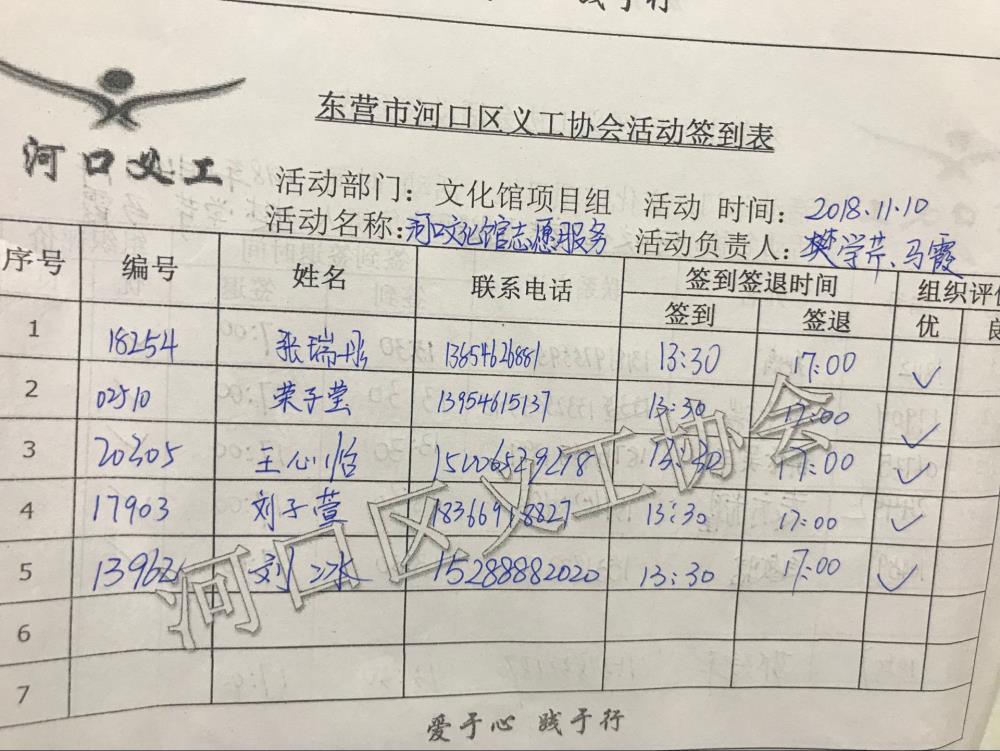 践于行
东营市河口区义工协会活动签到表
河口义工
活动部门： 文化馆项目组 活动 时间：2018.11.10
活动名称：河口文化馆志愿服务 活动负责人：樊学芹、马霞
序号 编号 姓名 联系电话 签到签退时间 组织评
签到 签退 优 良
1 18254 张瑞彤 13654626881 13:30 17:00 ✓
2 02510 荣子莹 13954615137 13:30 17:00 ✓
3 20305 王心怡 15006529218 13:30 17:00 ✓
4 17903 刘子萱 13:30 17:00 ✓
5 13962 刘 15288882020 13:30 17:00 ✓
6
7
河口区义工协会
爱于心 践于行